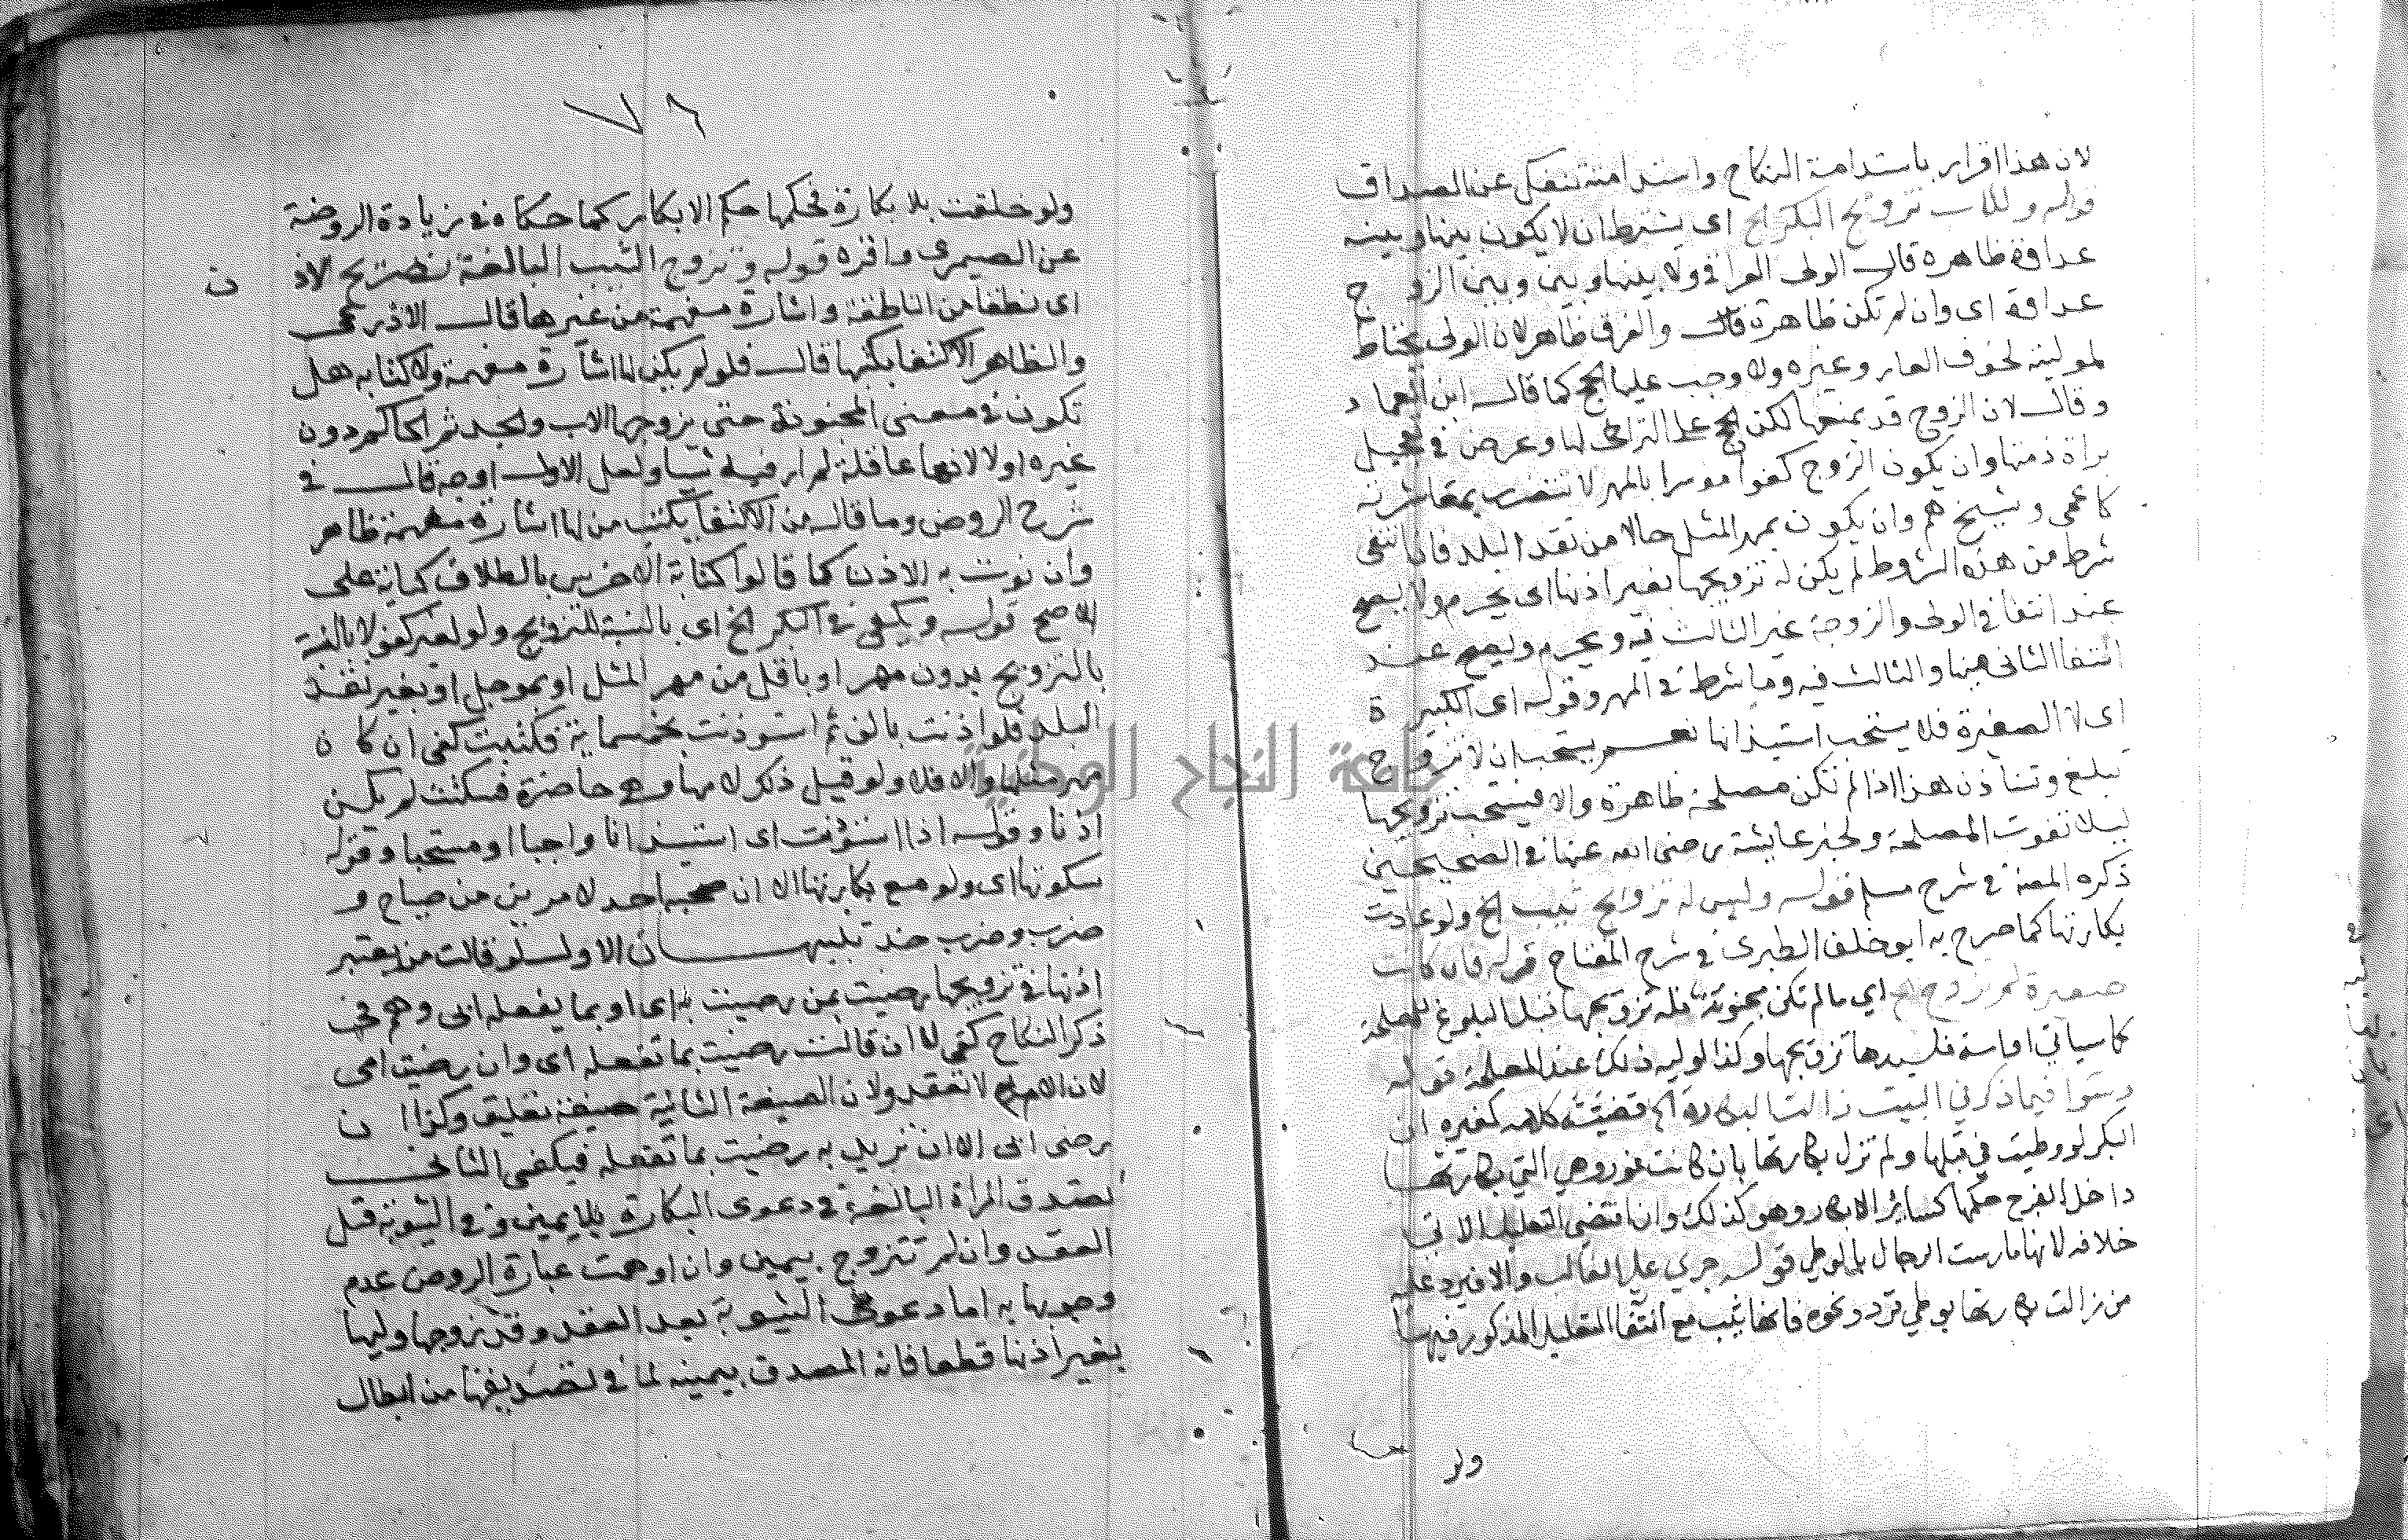 لان هذا اقرار باستدامة النكاح واستدامته تنفك عن الصداق
قوله وللاب تزويج البكر الخ اى يشترط ان لا يكون بينها وبينه
عداوة ظاهره قال الولى العراقى ولا بينها وبين الزوج
عداوة اى وان لم تكن ظاهرة قال والفرق ظاهر لان الولى يحتاط
لموليته لخوف العار وغيره ولا وجب عليها الحج كما قاله ابن العماد
وقال لان الزوج قد يمنعها لكن الحج على التراخى لها وغرض فى تعجيل
براة ذمتها وان يكون الزوج كفوا موسرا بالمهر لا تتضرر بمعاشرته
كاعمى وشيخ هم وان يكون بمهر المثل حالا من نقد البلد فان انتفى
شرط من هذه الشروط لم يكن له تزويجها بغير اذنها اى يحرم ولا يصح
عند انتفا فى الولى والزوجة غير الثالث فيه ويحرم ويصح عند
انتفا الثانى والثالث فيه وما شرط فى المهر وقوله اى الكبيرة
اى لا الصغيرة فلا يستحب استيذانها نعم يستحب ان لا تزوج
تبلغ وتستاذن هذا اذا لم تكن مصلحة ظاهرة والا فيستحب تزويجها
ليلا تفوت المصلحة ولخبر عايشة رضى الله عنها فى الصحيحين
ذكره المصنف فى شرح مسلم قوله وليس له تزويج ثيب الخ ولو عادت
بكارتها كما صرح به ابو خلف الطبرى فى شرح المفتاح قوله فان كانت
صغيرة لم تزوج الخ اي ما لم تكن مجنونة فله تزويجها قبل البلوغ للمصلحة
كما سياتي او امة فلسيدها تزويجها وكذا لوليه ذلك عند المصلحة قوله
وسوا فيما ذكر فى البيت زالت البكارة الخ قضيته كلامه كغيره ان
البكر لو وطيت في قبلها ولم تزل بكارتها بان كانت غورا وهي التي بكارتها
داخل الفرج حكمها كساير الابكار وهو كذلك وان اقتضى التعليل الاتى
خلافه لانها مارست الرجال بالوطي قوله جري على الغالب والا فيرد عليه
من زالت بكارتها بوطي قرد ونحوه فانها ثيب مع انتفا التعليل المذكور فيها
ولو
٧٦
ولو خلقت بلا بكارة فحكمها حكم الابكار كما حكاه فى زيادة الروضة
عن الصيمرى واقره قوله وتزوج الثيب البالغة بصريح الاذن
اى نطقا من الناطقة واشارة مفهمة من غيرها قال الاذرعى
والظاهر الاكتفا بكتبها قال فلو لم يكن لها اشارة مفهمة ولا كتابه هل
تكون فى معنى المجنونة حتى يزوجها الاب والجد ثم الحاكم دون
غيره اولا لانها عاقلة لم ار فيه شيا ولعل الاول اوجه قال فى
شرح الروض وما قاله من الاكتفا بكتب من لها اشارة مفهمة ظاهر
وان نوت به الاذن كما قالوا كتابة الاخرس بالطلاق كناية على
الاصح قوله ويكفى فى البكر الخ اى بالنسبة للتزويج ولو لغير كفو لا بالنسبة
بالتزويج بدون مهر او باقل من مهر المثل او بموجل او بغير نقد
البلد فلو اذنت بالف ثم استوذنت بخمسماية فسكتت كفى ان كان
مهر مثلها والا فلا ولو قيل ذلك لامها وهى حاضرة فسكتت لم يكن
اذنا وقوله اذا استؤذنت اى استيذانا واجبا او مستحبا وقوله
سكوتها اى ولو مع بكارتها الا ان صحبه احد لامرين من صياح و
ضرب وضرب خد تنبيهـان الاول لو قالت من يعتبر
اذنها فى تزويجها رضيت بمن رضيت به اى او بما يفعله ابى وهم فى
ذكر النكاح كفى لا ان قالت رضيت بما تفعله اى وان رضيت امى
لان الام لا تعقد ولان الصيغة الثانية صيغة تعليق وكذا ان
رضى ابى الا ان تريد به رضيت بما تفعله فيكفى الثانى
تصدق المراة البالغة فى دعوى البكارة بلا يمين وفى الثيوبة قبل
العقد وان لم تتزوج بيمين وان اوهمت عبارة الروض عدم
وجوبها به اما دعوى الثيوبة بعد العقد وقد زوجها وليها
بغير اذنها قطعا فانه المصدق بيمينه لما فى تصديقها من ابطال
جامعة النجاح الوطنية